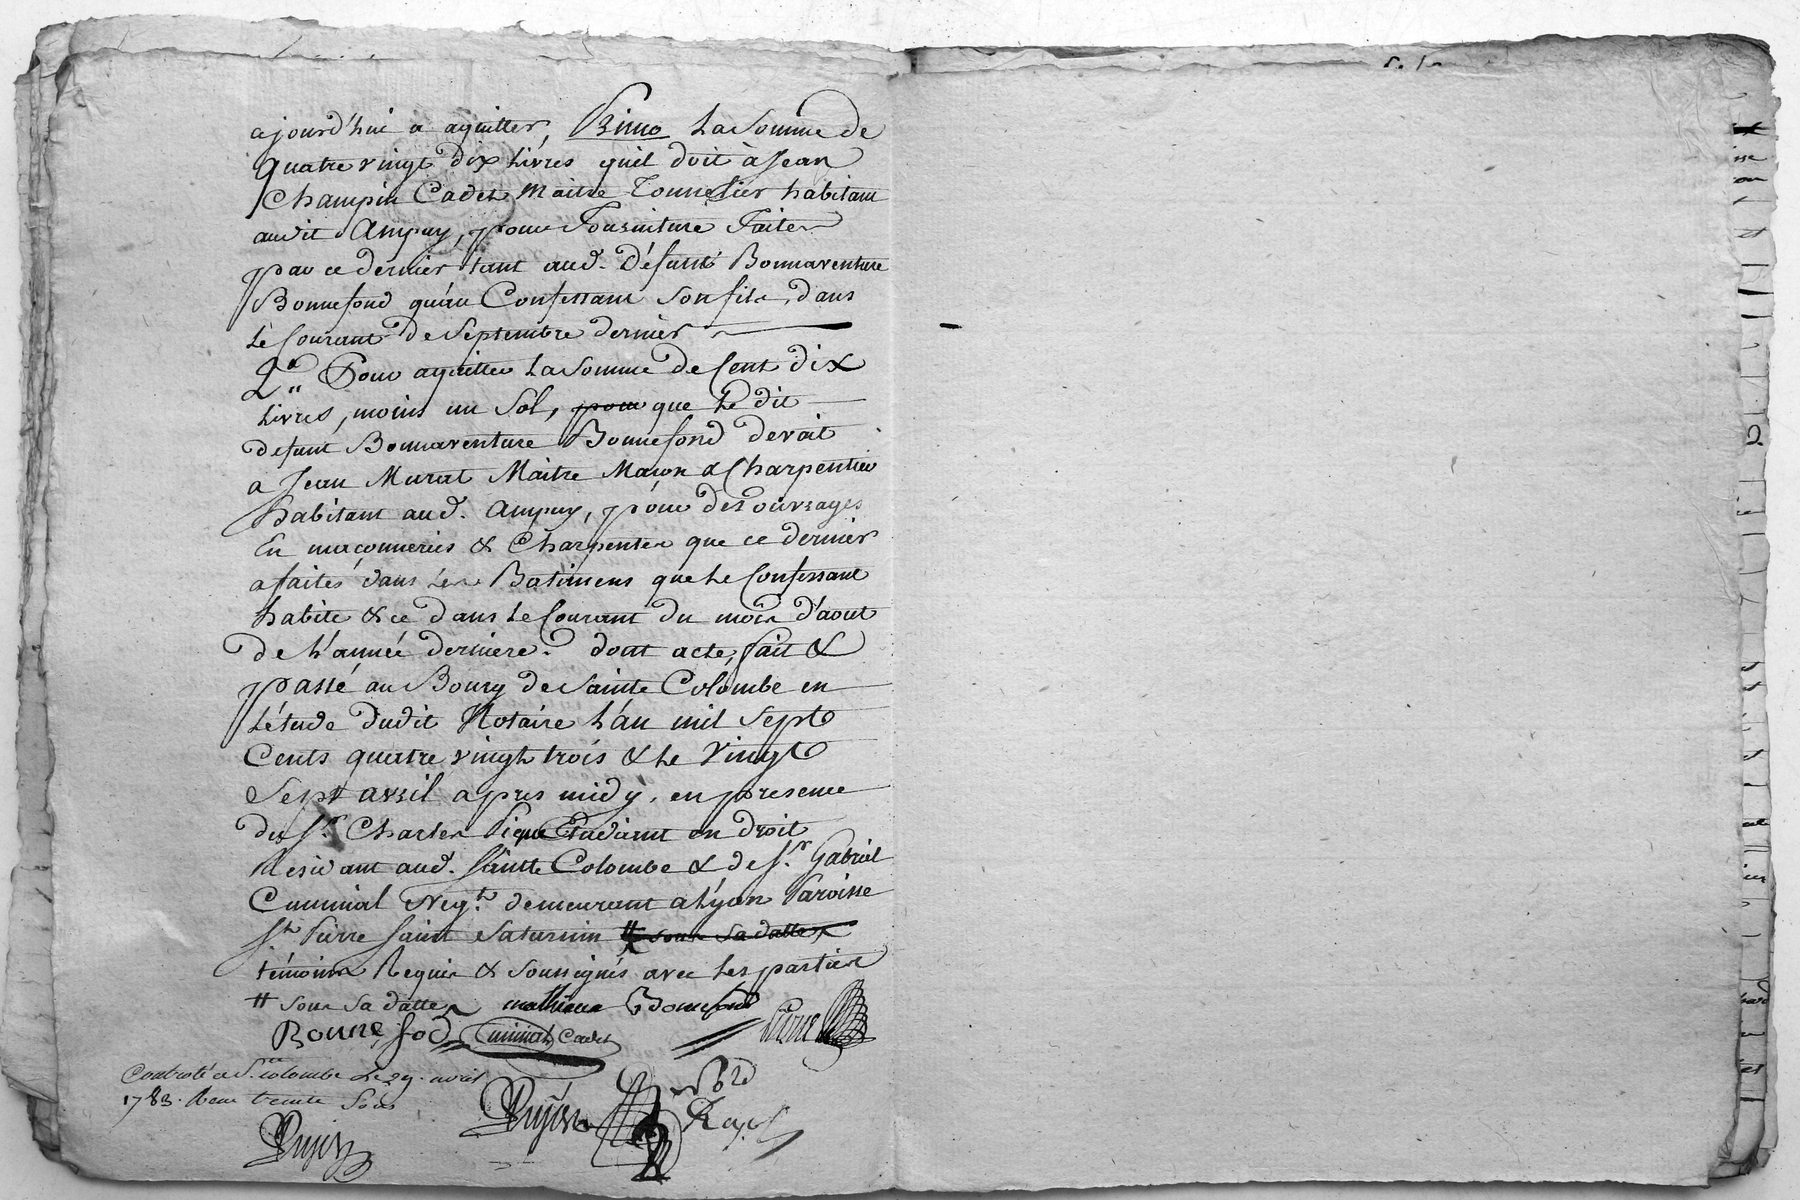 ajourd'hui a aquitter, Primo La Somme de
quatre vingt dix Livres quil doit à Jean
Champin Cadet Maitre Tonnelier habitant
audit Ampuy, pour Fourniture Faites
par ce dernier tant aud. défunt Bonnaventure
Bonnefond qu'au Confessant Son fils, dans
Le Courant de Septembre dernier
2.° Pour aquitter La Somme de Cent dix
Livres, moins un Sol, pour que Le dit
defunt Bonnaventure Bonnefond devait
a Jean Murat Maitre Maçon & Charpentier
habitant aud. Ampuy, pour des ouvrages
En maçonneries & Charpentes que ce dernier
a faites dans Les Batimens que Le Confessant
habite & ce dans Le Courant du mois d'aout
de L'année derniere. dont acte, fait &
passé au Bourg de Sainte Colombe en
L'étude dudit Notaire L'an mil Sept
Cents quatre vingt trois & Le Vingt
Sept avril apres midy, en presence
du Sr. Charles Etudiant en Droit
Residant aud. Sainte Colombe & de Sr. Gabriel
Cuminal Negt. demeurant a Lyon Paroisse
St. Pierre Saint Saturnin # sous sa datte
témoins Requis & Soussignés avec Les parties
# sous sa datte mathieu Bonnefond
Bonnefod Cuminal Cadet
Controlé a Ste. Colombe Le 29. avril
1783. Reçu trente Sous